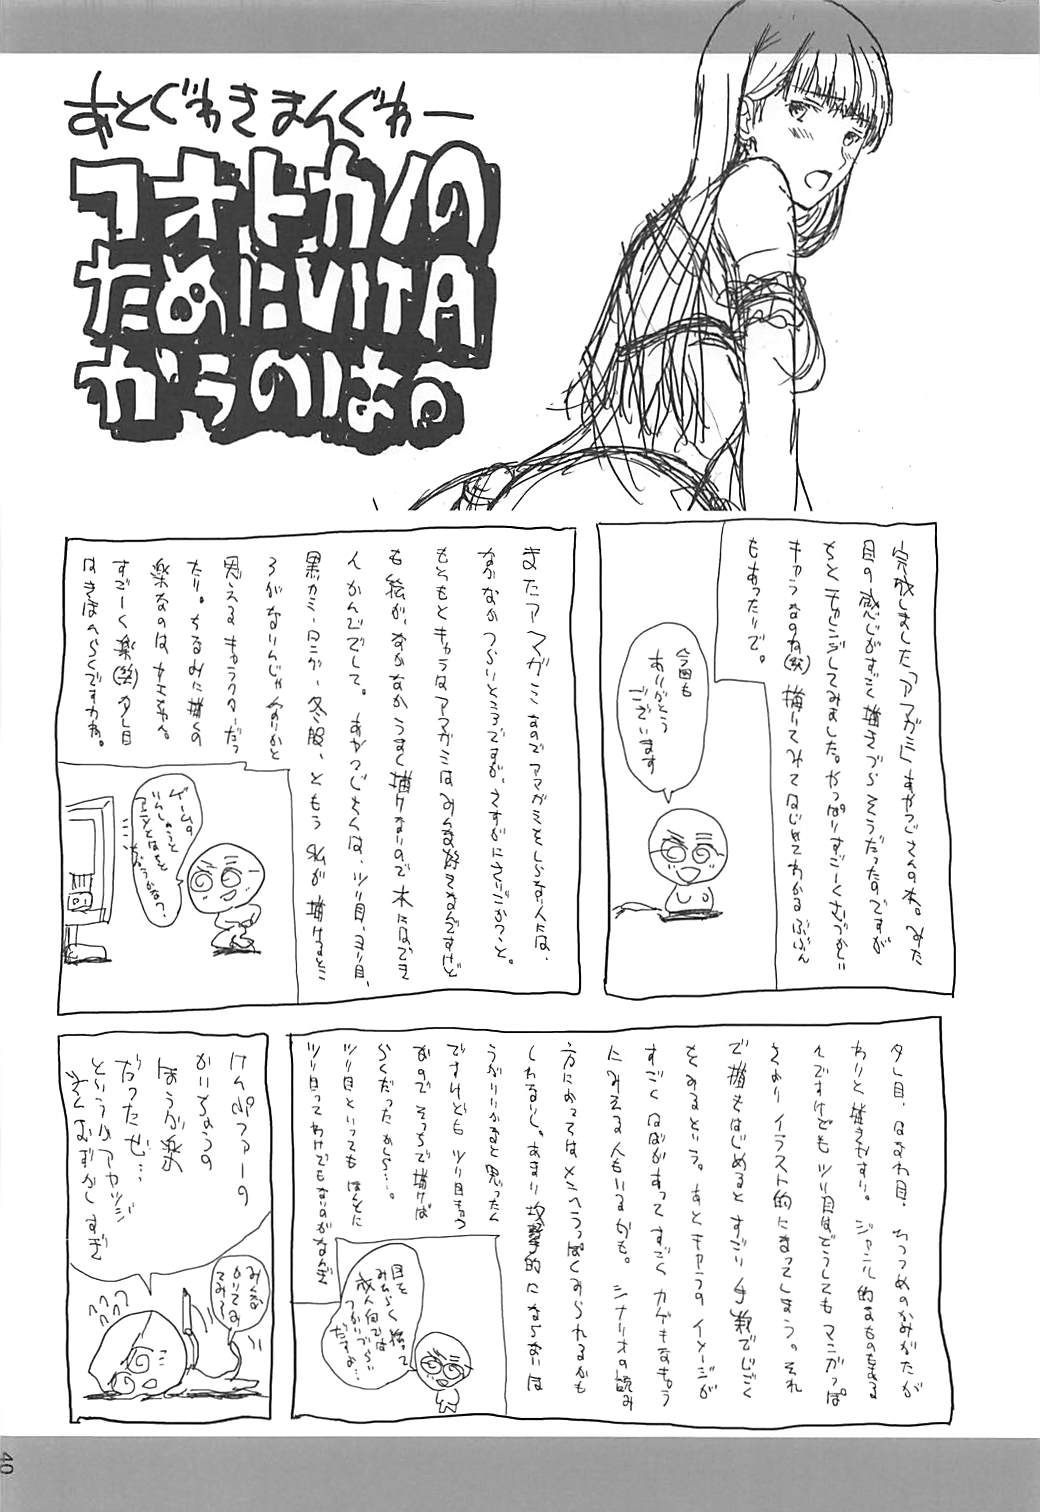 あとぐわきまんぐわー
フォトカノの
ためにVITA
かうのは。
完成しました「アマガミ」すやつじさんのね。みた
目の感じがすごく描きづらそうだったのですが
ちとチャレンジしてみました。やっぱりすごーくむづかしい
キャラなのね(笑)描いてみてはじめてわかるぶぶん
もあったりで。
今回も
ありがとう
ございます
またアマガミなのでアマガミをしらない人には、
なかなかつらいところですが、さすがに
もともとキャラはアマガミはみんな好きなんですけど
も絵が、なかなかうまく描けないので本にはでき
んかんじでして。あやつじさんは、ツリ目、ヨリ目、
黒カミ・ロング・冬服、ともう私が描けるとこ
ろがないんじゃないかと
思えるキャラクターだっ
たり。ちなみに描くの
楽なのは
すごーく楽(笑)タレ目
はきほんらくですわね。
ゲームの
りんしょうと
アニメとはなぜ
ちがうかな?
タレ目、はなれ目、
わりと描きやすい。ジャンル的なものもある
んですけどもツリ目はどうしてもマンガっぽ
さよりイラスト的になってしまう。それ
で描きはじめるとすごい手数でじごく
をみるという。あとキャラのイメージが
すごくはばがあってすごくカゲキなキャラ
にみえる人もいるかも。シナリオの読み
方によってはメンヘラっぽくみられるかも
しれないし。あまり攻撃的にならないほ
うがいいかなと思ったん
ですけどもツリ目キャラ
なのでそっちで描けば
らくだったかしら…。
ツリ目といってもほんとに
ツリ目ってわけでもないのがなんぎ
目を
みひらく描って
成人向では
つかいづらい
だすよ…
けんぷファーの
かいちょうの
ほうが楽
だったぜ…
というかアヤツジ
さんむずかしすぎ
みんな
かいてみ
てみそ
40